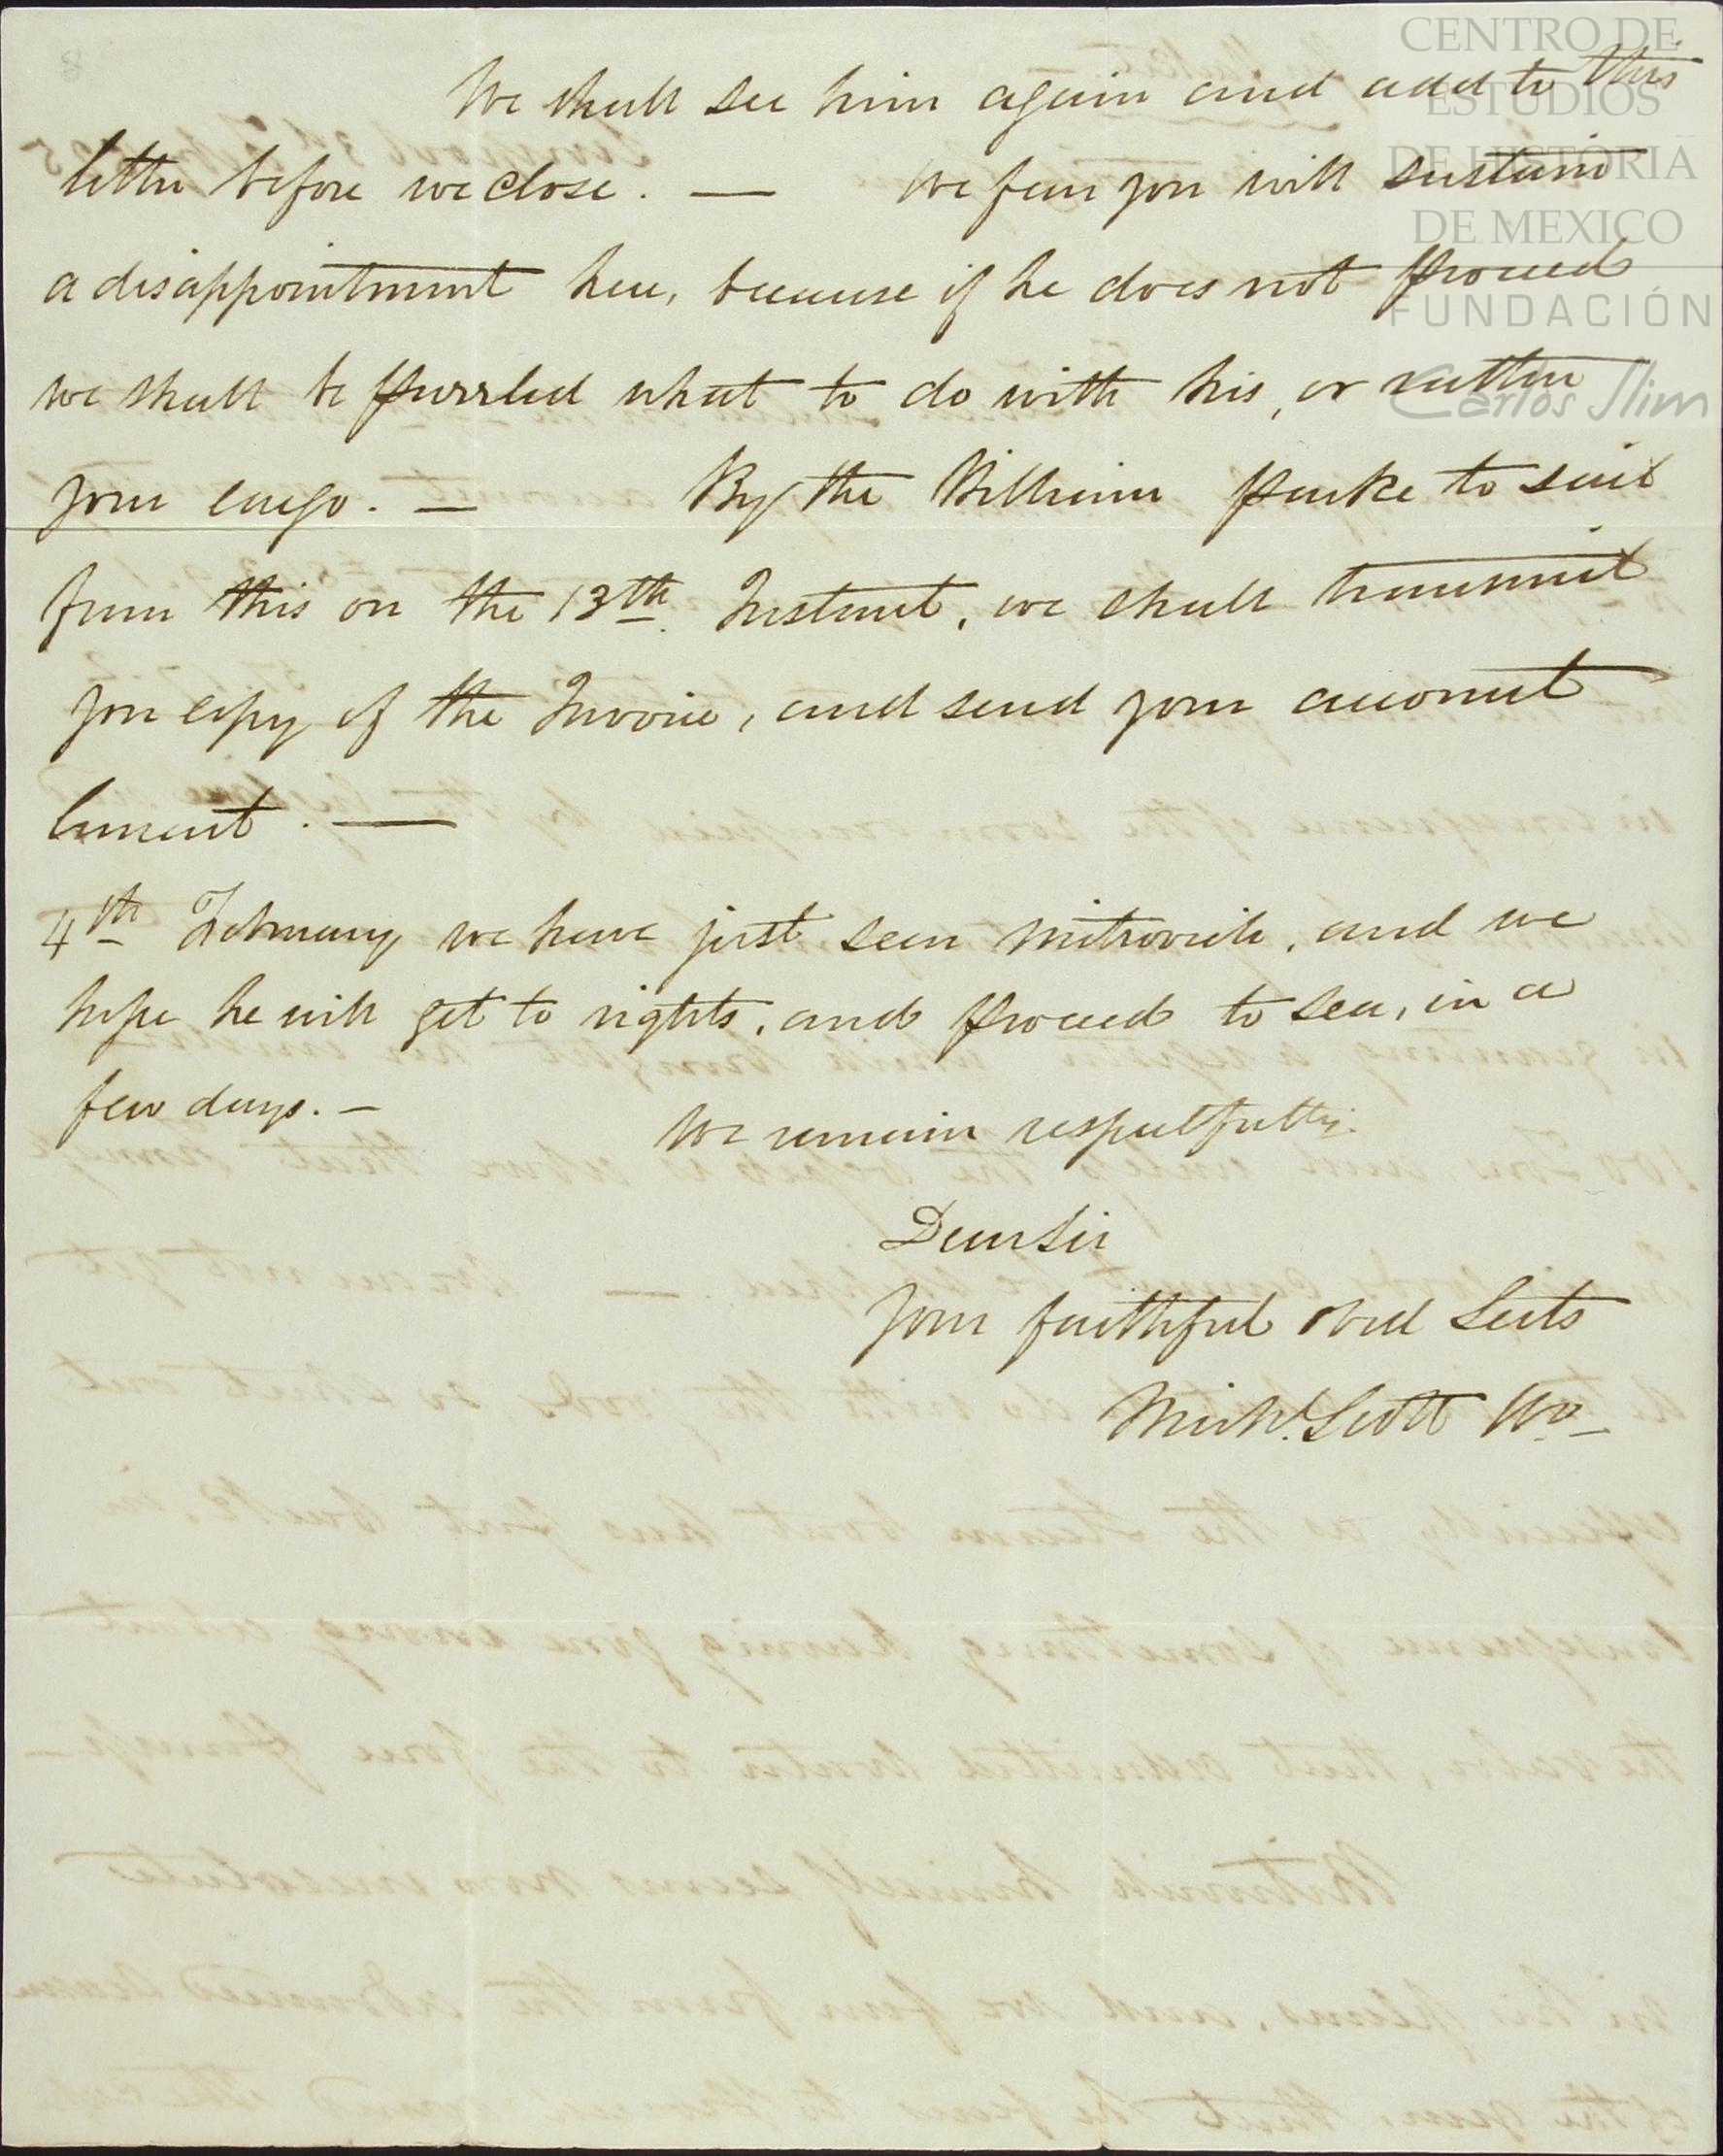 CENTRO DE
ESTUDIOS
DE HISTORIA
DE MEXICO
FUNDACIÓN
Carlos Slim
We shall see him again and add to this
letter before we close. — We fear you will sustain
a disappointment here, because if he does not proceed
we shall be puzzled what to do with his, or rather
your cargo. — By the William Parke to sail
from this on the 13th Instant, we shall transmit
you copy of the Invoice, and send your account
Current. —
4th February we have just seen Mitrovich, and we
hope he will get to rights, and proceed to sea, in a
few days. —
We remain respectfully.
Dear Sir
Your faithful Obed Servts
Scott &Co